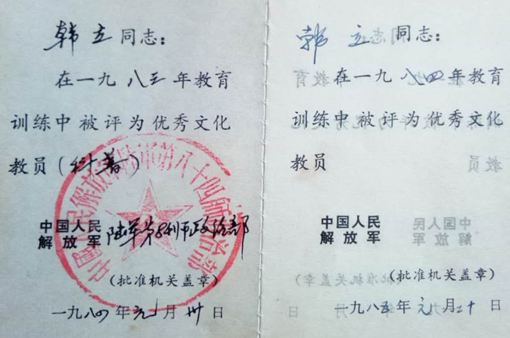 韩立同志：
在一九八三年教育
训练中被评为优秀文化
教员(
中国人民
解放军 陆军第84师政治部
(批准机关盖章)
一九八四年元月卅日
韩立同志：
在一九八四年教育
训练中被评为优秀文化
教员
中国人民
解放军
(批准机关盖章)
一九八五年元月二十日